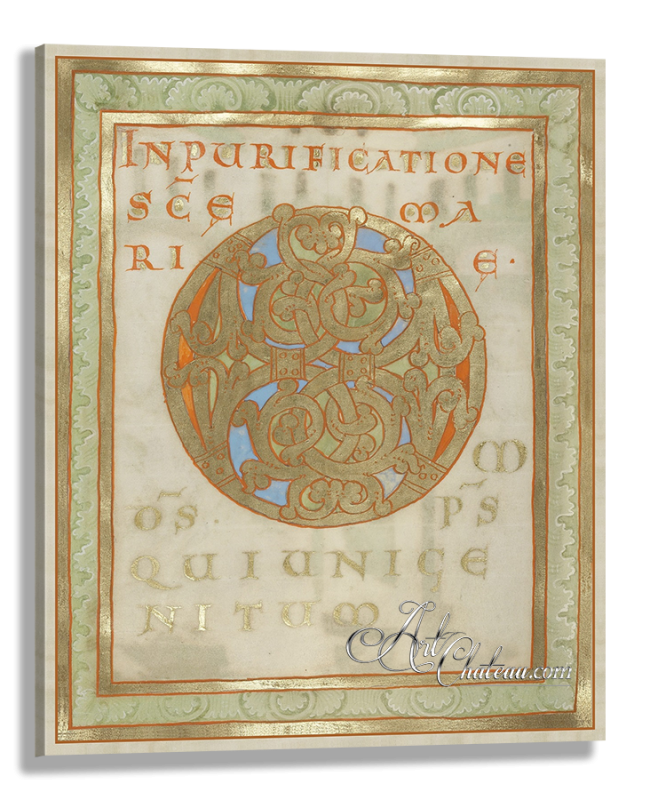 INPURIFICATIONE
SC̄E MA
RI E·
M
ŌS· P̄S
QUIUNIGE
NITUM
ArtChateau.com